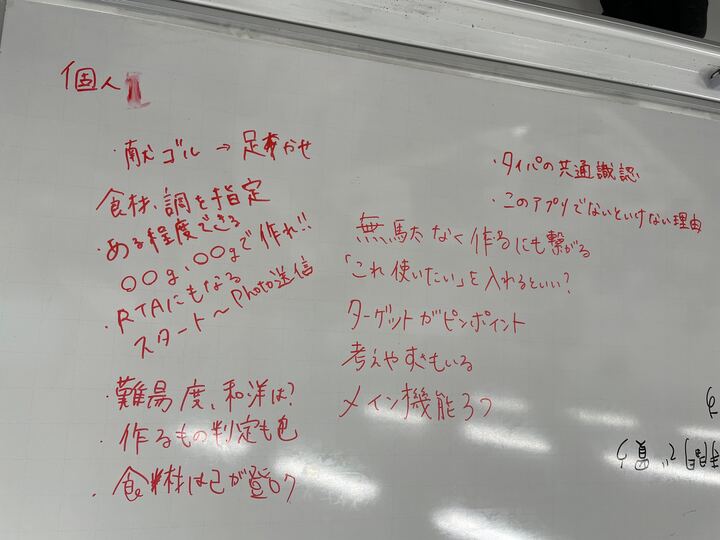 個人
・献ゴル → 足かせ
食材、調を指定
・ある程度できる
○○g、○○gで作れ!!
・RTAにもなる
スタート〜Photo送信
・難易度、和洋は?
・作るもの判定も色
・食材は己が登ロク
・タイパの共通識認
・このアプリでないといけない理由
無駄なく作るにも繋がる
「これ使いたい」を入れるといい?
ターゲットがピンポイント
考えやすさもいる
メイン機能3つ